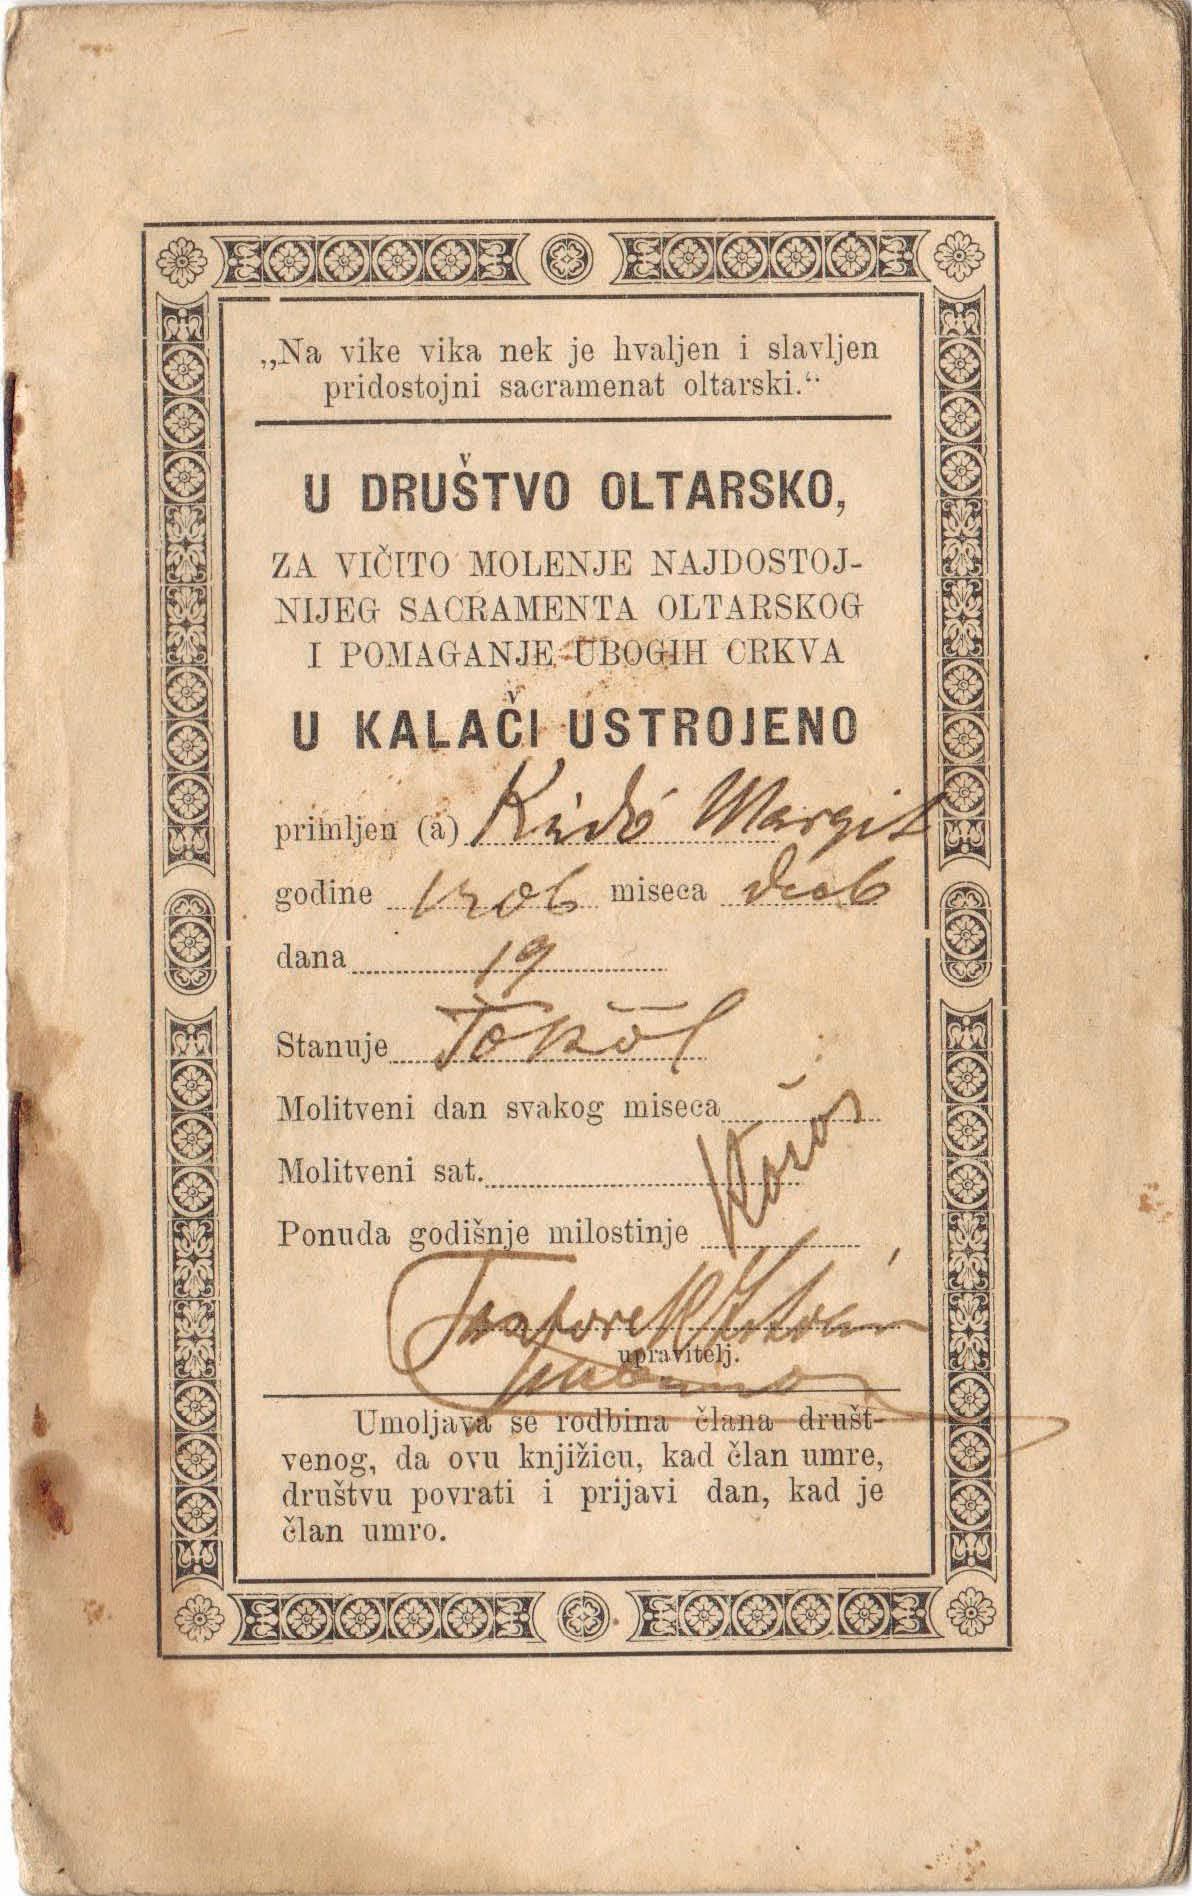 „Na vike vika nek je hvaljen i slavljen
pridostojni sacramenat oltarski.“
U DRUŠTVO OLTARSKO,
ZA VIČITO MOLENJE NAJDOSTOJ-
NIJEG SACRAMENTA OLTARSKOG
I POMAGANJE UBOGIH CRKVA
U KALAČI USTROJENO
primljen (a) Margit
godine 1906 miseca
dana 19
Stanuje Tököl
Molitveni dan svakog miseca
Molitveni sat.
Ponuda godišnje milostinje
upravitelj.
Umoljava se rodbina člana društ-
venog, da ovu knjižicu, kad član umre,
društvu povrati i prijavi dan, kad je
član umro.